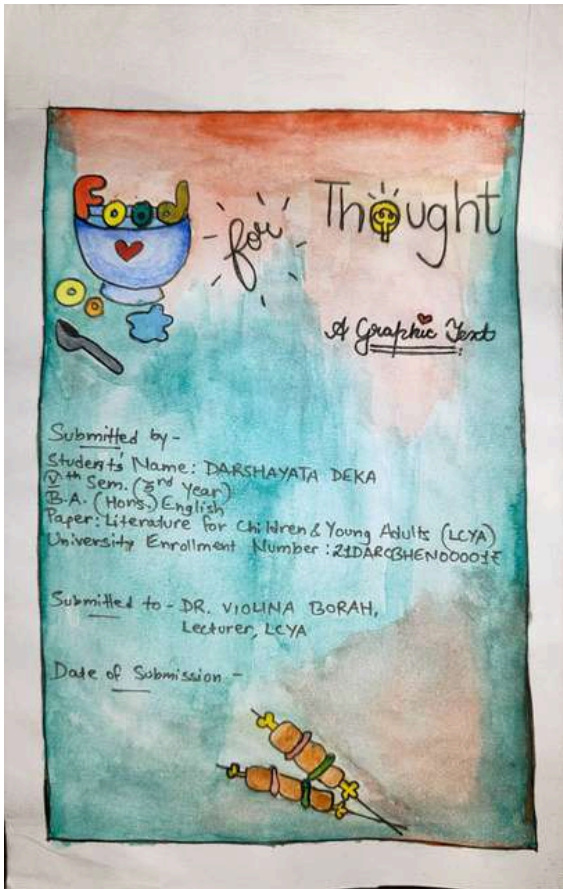 Food for Thought
A Graphic Text
Submitted by -
Student's Name: DARSHAYATA DEKA
Vth Sem. (3rd Year)
B.A. (Hons.) English
Paper: Literature for Children & Young Adults (LCYA)
University Enrollment Number:
Submitted to - DR. VIOLINA BORAH,
Lecturer, LCYA
Date of Submission -